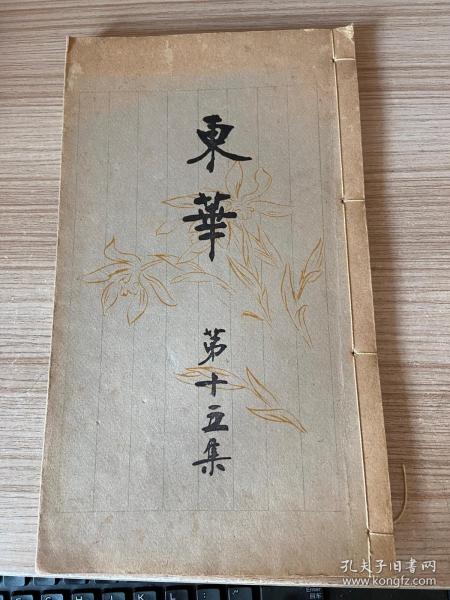 東華
第十五集
孔夫子旧书网
www.kongfz.com
Enter